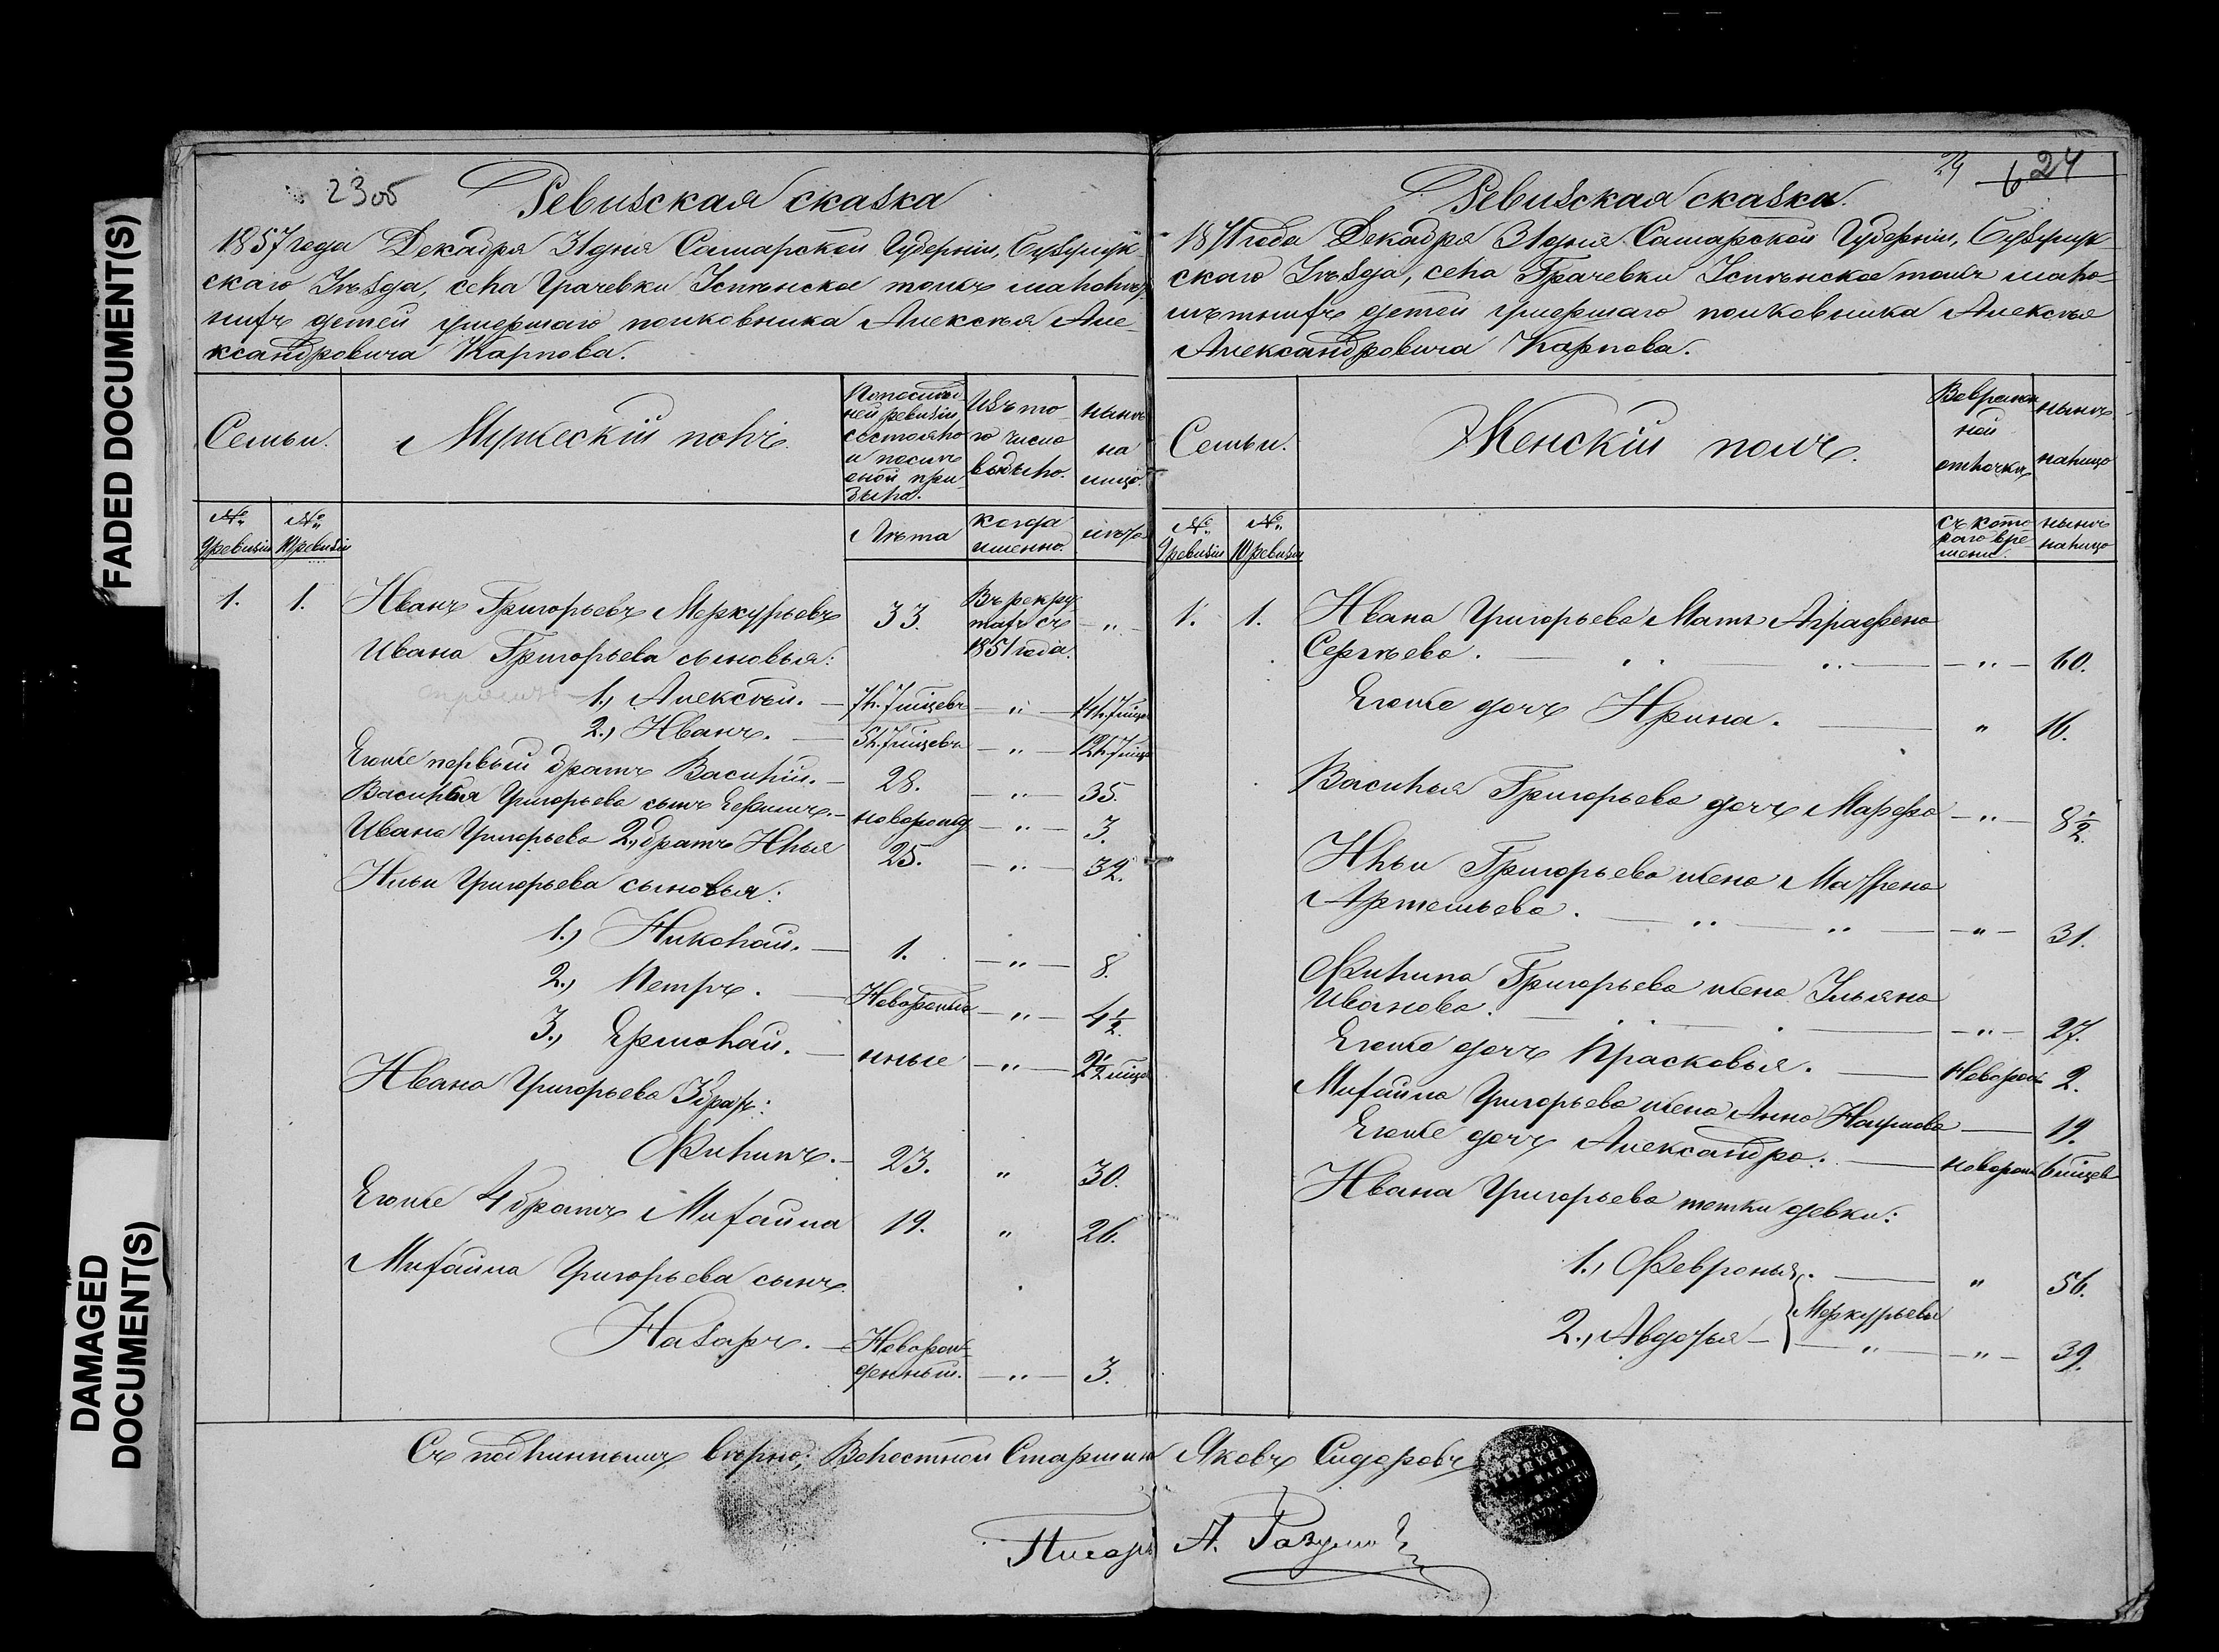 FADED DOCUMENT(S)
DAMAGED
DOCUMENT(S)
23об
Ревизская сказка
1857 года Декабря 31 дня Самарской Губерніи, Бузулук-
скаго Уѣзда, села Грачевки Успѣнское тожъ малолѣт-
нихъ детей умершаго полковника Алексѣя Але-
ксандровича Карпова.
Семьи.
Мужескій полъ.
По послѣд
ней ревизіи
состояло
и послѣ
оной при
было.
Изъ то
го числа
выбыло.
нынѣ
на
лицо.
№
9 ревизіи
№
10 ревизіи
Лѣта
когда
именно.
лѣта
1. 1. Иванъ Григорьевъ Меркурьевъ 33. Въ рекру
тахъ съ
1851 года. "
Ивана Григорьева сыновья:
1., Алексѣй. 7 л. 7 мѣцевъ " 14 л. 7 мѣце
2., Иванъ. 5 л. 7 мѣцевъ " 12 л. 7 мѣце
Егоже первый братъ Василій. 28. " 35.
Василья Григорьева сынъ Ефимъ. новорожд " 3.
Ивана Григорьева 2, братъ Илья 25. " 32.
Ильи Григорьева сыновья:
1., Николай. 1. " 8.
2., Петръ. Новорожде " 4½
3., Ермолай. нные " 2½ мѣце
Ивана Григорьева 3 братъ:
Филипъ. 23. " 30.
Егоже 4 братъ Михайла 19. " 26.
Михайла Григорьева сынъ
Назаръ. Новорож-
денный. " 3.
24 6 24
Ревизская сказка.
1857 года Декабря 31 дня Самарской Губерніи, Бузулук
скаго Уѣзда, села Грачевки Успѣнское тожъ мало-
лѣтнихъ детей умершаго полковника Алексѣя
Александровича Карпова.
Семьи.
Женскій полъ.
Во времен
ной
отлучкѣ
нынѣ
налицо
№
9 ревизіи
№
10 ревизіи
съ кото
раго вре-
мени.
нынѣ
налицо
1. 1. Ивана Григорьева Мать Аграфена
Сергѣева. " 60.
Егоже дочь Ирина. " 16.
Василья Григорьева дочь Марфа " 8½
Ильи Григорьева жена Мавѣрена
Артемьева. " 31.
Филипа Григорьева жена Ульяна
Иванова. " 27.
Егоже дочь Прасковья. Новорож 2.
Михайла Григорьева жена Анна Наумова 19.
Егоже дочь Александра. новорож 6 мѣцев
Ивана Григорьева тетки девки:
1., Февронья. " 56.
Меркурьевы
2., Авдотья " " 39.
Съ подлиннымъ вѣрно; Волостной Старшина Яковъ Сидоровъ
Писарь А. Разумов